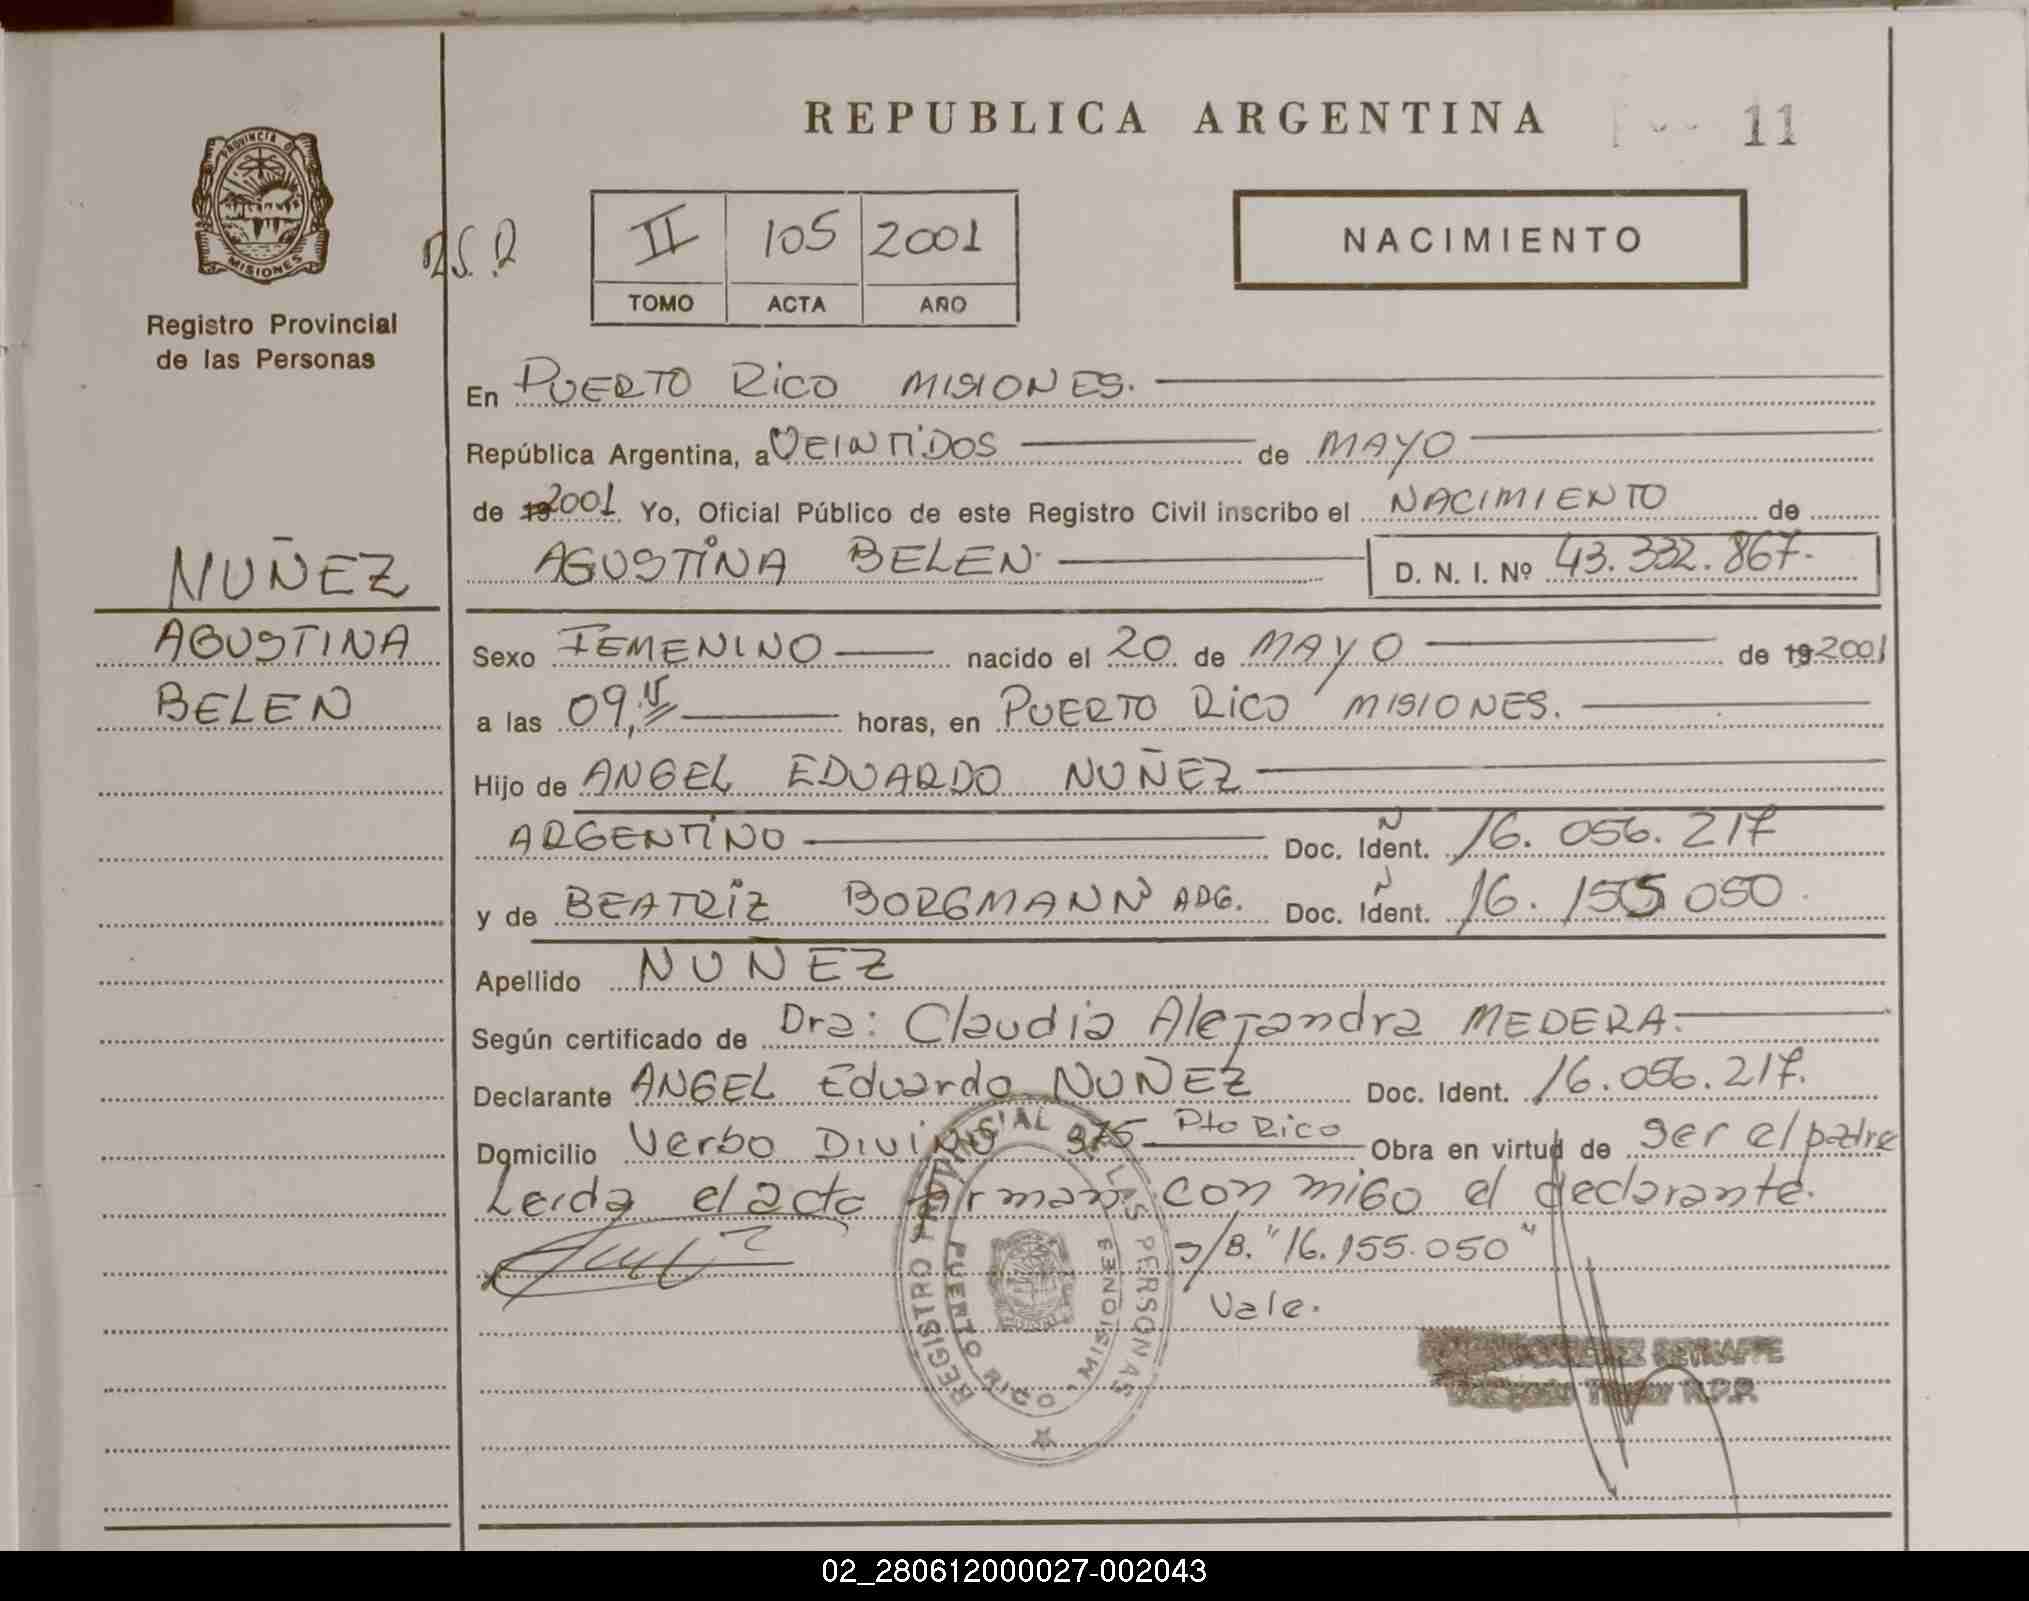 REPUBLICA ARGENTINA
11
PROVINCIA D
MISIONES
Registro Provincial
de las Personas
II 105 2001
TOMO ACTA AÑO
NACIMIENTO
En PUERTO RICO MISIONES.
República Argentina, a VEINTIDOS de MAYO
de 19 2001 Yo, Oficial Público de este Registro Civil inscribo el NACIMIENTO de
AGUSTINA BELEN D. N. I. Nº 43.332.867.
NUÑEZ
AGUSTINA
BELEN
Sexo FEMENINO nacido el 20 de MAYO de 19 2001
a las 09,15 horas, en PUERTO RICO MISIONES.
Hijo de ANGEL EDUARDO NUÑEZ
ARGENTINO Doc. Ident. 16.056.217
y de BEATRIZ BORGMANN ARG. Doc. Ident. 16.155 050.
Apellido NUÑEZ
Según certificado de Dra: Claudia Alejandra MEDERA.
Declarante ANGEL Eduardo NUÑEZ Doc. Ident. 16.056.217.
Domicilio Verbo DIVINO 975 Pto Rico Obra en virtud de ser el padre
Leida el acta firman con migo el declarante.
s/B. "16.155.050"
Vale.
REGISTRO PROVINCIAL DE LAS PERSONAS
PUERTO RICO - MISIONES
Delegado Titular R.P.P.
02_280612000027-002043